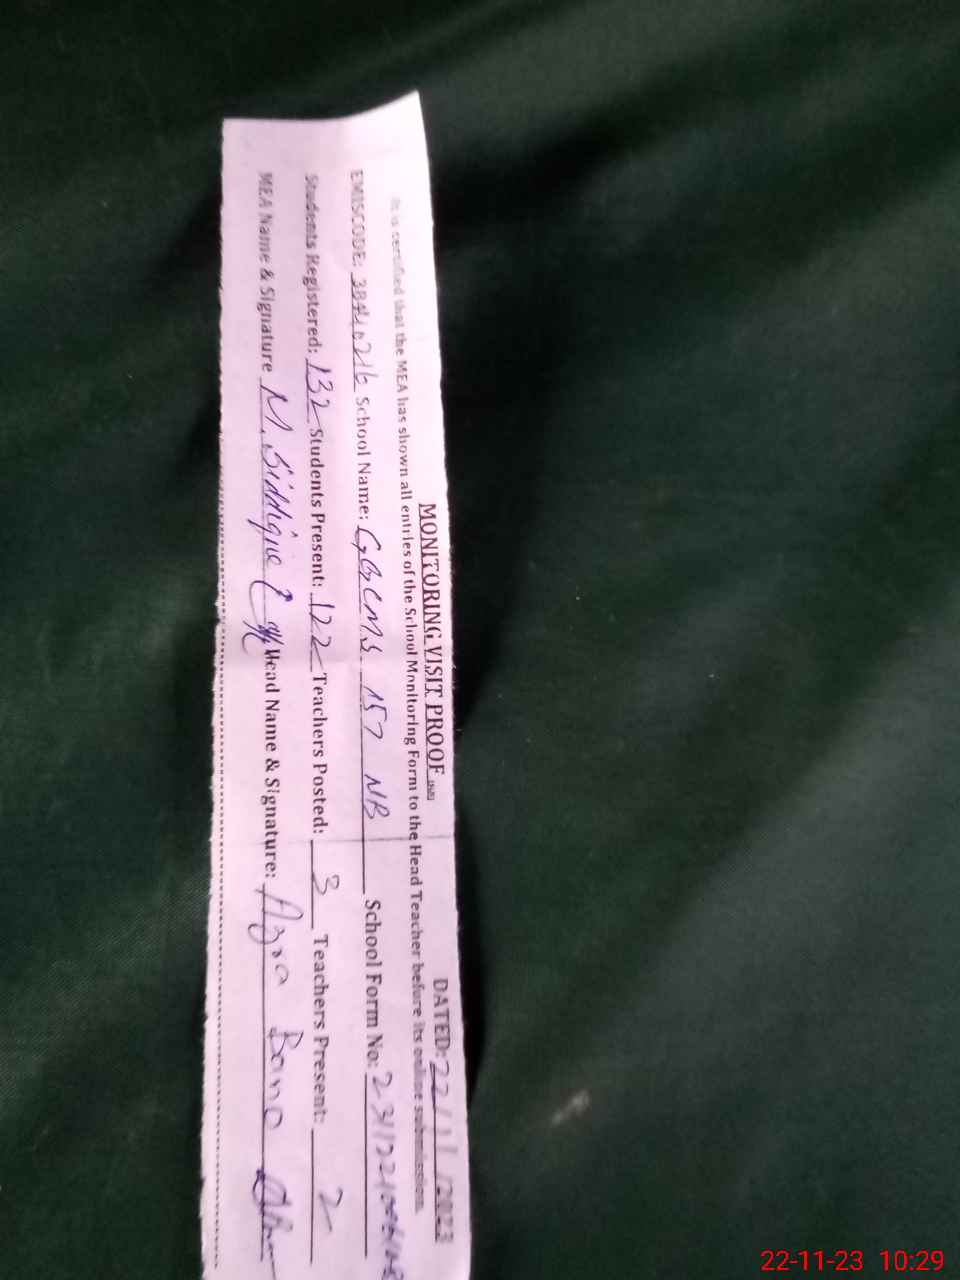 MONITORING VISIT PROOF DATED: 22/11/2023
It is certified that the MEA has shown all entries of the School Monitoring Form to the Head Teacher before its online submission.
EMISCODE: 38410216 School Name: GGCMS 157 NB School Form No:
Students Registered: 132 Students Present: 122 Teachers Posted: 3 Teachers Present: 2
MEA Name & Signature M. Siddique Head Name & Signature: Azra Bano
22-11-23 10:29